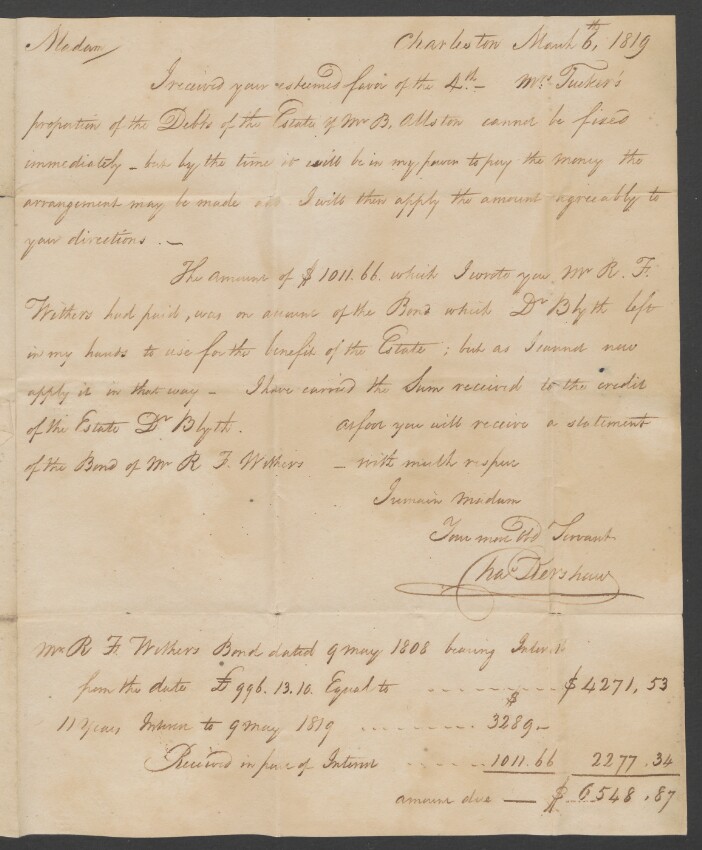 Charleston March 6th, 1819
Madam
I received your esteemed favor of the 4th - Mrs. Tucker's
proportion of the Debts of the Estate of Mr B. Allston cannot be fixed
immediately - but by the time it will be in my power to pay the money the
arrangement may be made and I will then apply the amount agreeably to
your directions. -
The amount of $1011.66 which I wrote you Mr R. F.
Withers had paid, was on account of the Bond which Dr Blyth left
in my hands to use for the benefit of the Estate; but as I cannot now
apply it in that way - I have carried the Sum received to the credit
of the Estate Dr Blyth. at foot you will receive a statement
of the Bond of Mr R F. Withers - with much respect
I remain Madam
Your most Obd Servant
Chas Kershaw
Mr R F. Withers Bond dated 9 May 1808 bearing Interest
from the date £996.13.10. Equal to - - - - - - - $4271,53
11 Years Interest to 9 May 1819 - - - - - - - $3289-
Received in part of Interest - - - - - 1011.66 2277.34
amount due — $6548.87